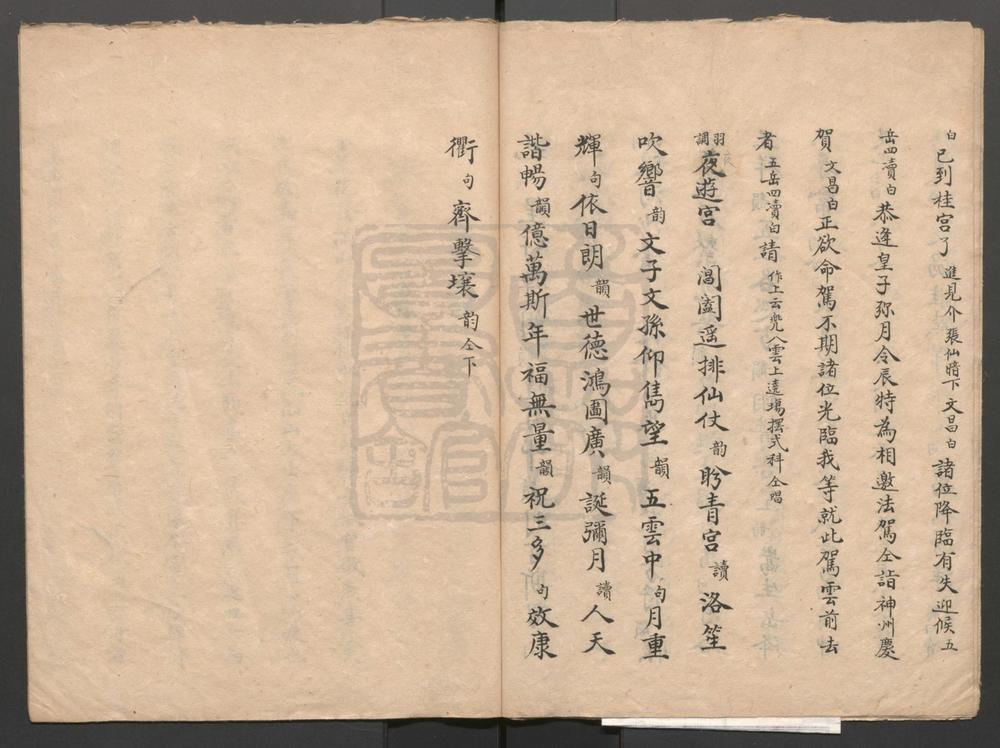 白已到桂宮了進見介張仙暗下文昌白諸位降臨有失迎候五
岳四瀆白恭逢皇子弥月令辰特為相邀法駕仝詣神州慶
賀文昌白正欲命駕不期諸位光臨我等就此駕雲前去
者五岳四瀆白請作上云兠八雲上遶塲擺式科仝唱
羽調夜遊宮閶闔遥排仙仗韵盻青宮讀洛笙
吹響韵文子文孫仰雋望韻五雲中句月重
輝句依日朗韻世德鴻圖廣韻誕彌月讀人天
諧暢韻億萬斯年福無量韻祝三多句效康
衢句齊擊壤韵仝下